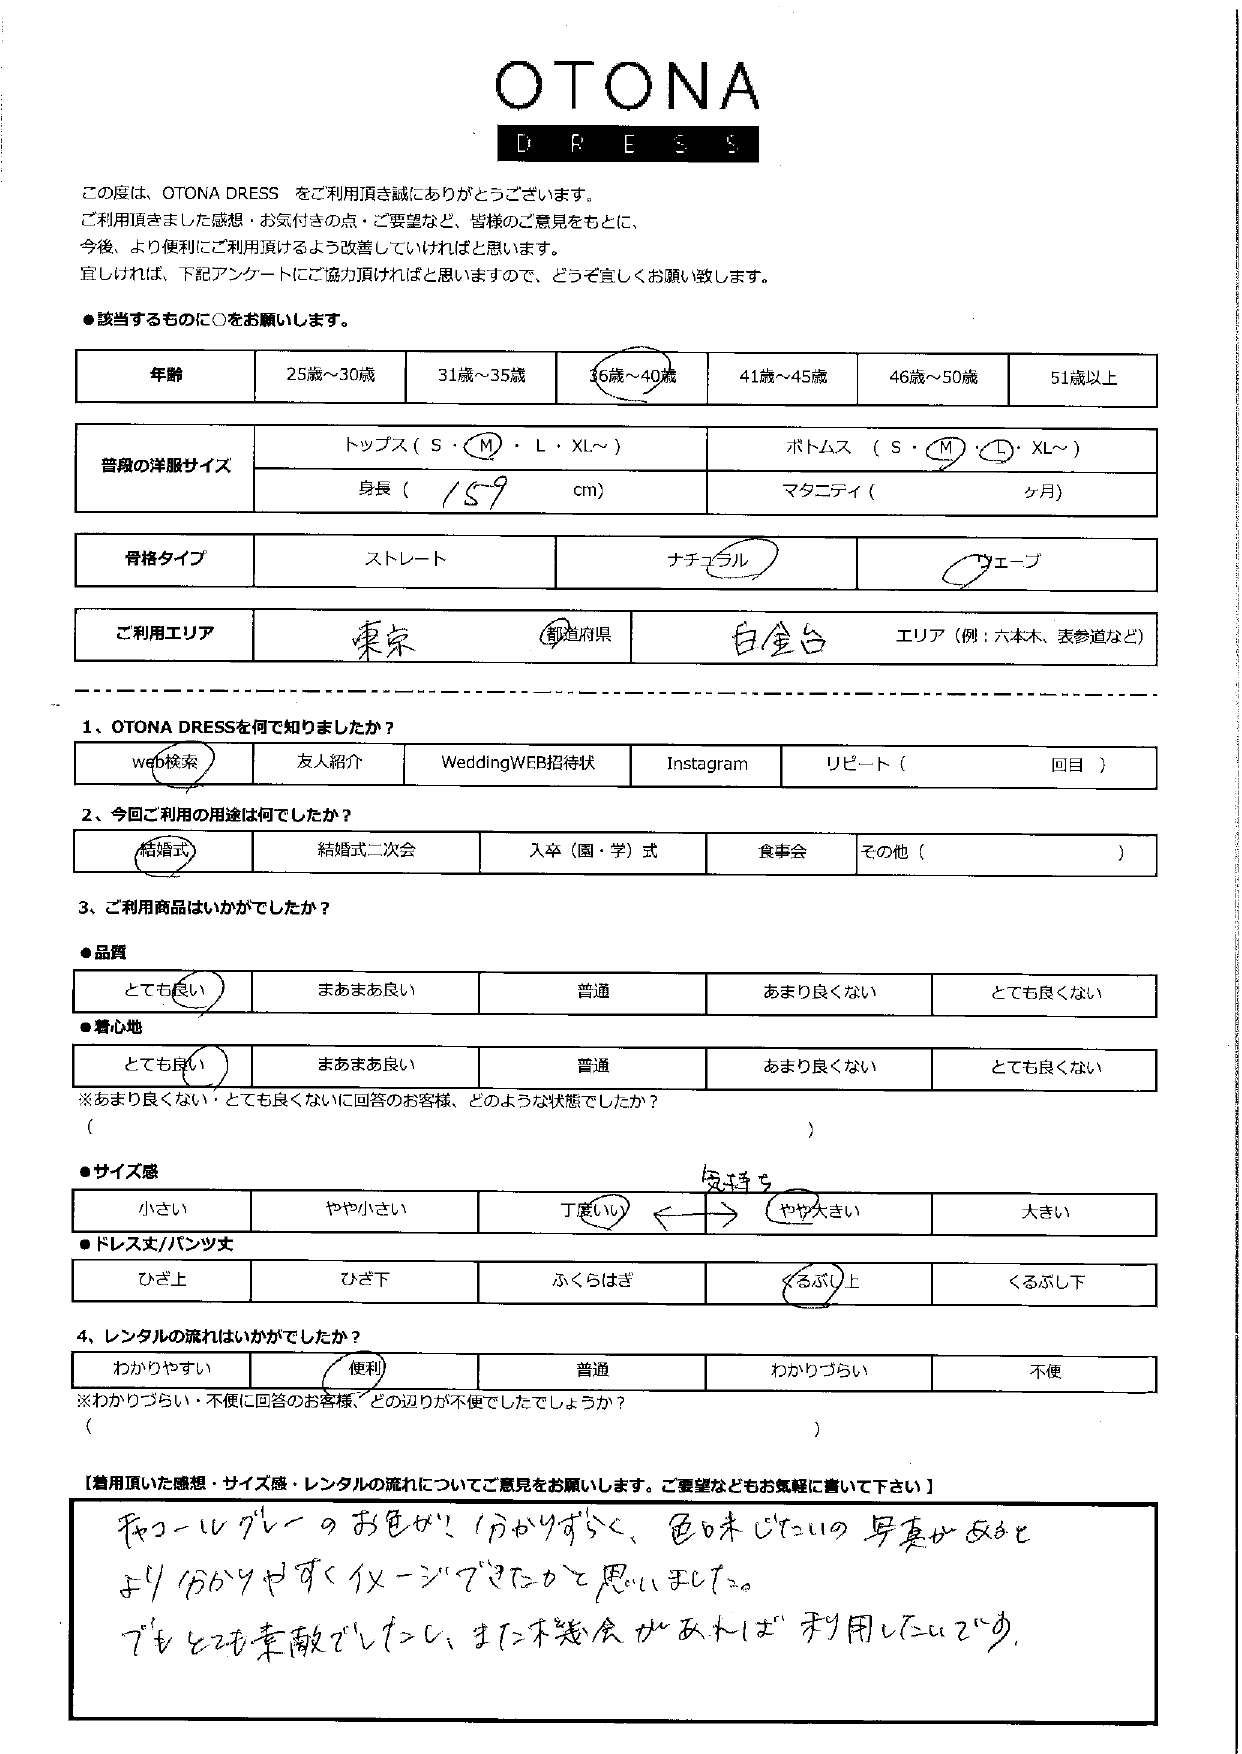 OTONA
DRESS
この度は、OTONA DRESS をご利用頂き誠にありがとうございます。
ご利用頂きました感想・お気付きの点・ご要望など、皆様のご意見をもとに、
今後、より便利にご利用頂けるよう改善していければと思います。
宜しければ、下記アンケートにご協力頂ければと思いますので、どうぞ宜しくお願い致します。
●該当するものに○をお願いします。
年齢 25歳～30歳 31歳～35歳 36歳～40歳 41歳～45歳 46歳～50歳 51歳以上
普段の洋服サイズ トップス ( S ・ M ・ L ・ XL～ ) ボトムス ( S ・ M ・ L ・ XL～ )
身長 ( 159 cm) マタニティ ( ヶ月)
骨格タイプ ストレート ナチュラル ウェーブ
ご利用エリア 東京 都道府県 白金台 エリア（例：六本木、表参道など）
1、OTONA DRESSを何で知りましたか？
web検索 友人紹介 WeddingWEB招待状 Instagram リピート ( 回目 )
2、今回ご利用の用途は何でしたか？
結婚式 結婚式二次会 入卒（園・学）式 食事会 その他 ( )
3、ご利用商品はいかがでしたか？
●品質
とても良い まあまあ良い 普通 あまり良くない とても良くない
●着心地
とても良い まあまあ良い 普通 あまり良くない とても良くない
※あまり良くない・とても良くないに回答のお客様、どのような状態でしたか？
( )
●サイズ感
気持ち
小さい やや小さい 丁度いい ←→ やや大きい 大きい
●ドレス丈/パンツ丈
ひざ上 ひざ下 ふくらはぎ くるぶし上 くるぶし下
4、レンタルの流れはいかがでしたか？
わかりやすい 便利 普通 わかりづらい 不便
※わかりづらい・不便に回答のお客様、どの辺りが不便でしたでしょうか？
( )
【着用頂いた感想・サイズ感・レンタルの流れについてご意見をお願いします。ご要望などもお気軽に書いて下さい】
チャコールグレーのお色が分かりずらく、色味じたいの写真があると
より分かりやすくイメージできたかと思いました。
でもとても素敵でしたし、また機会があれば利用したいです。